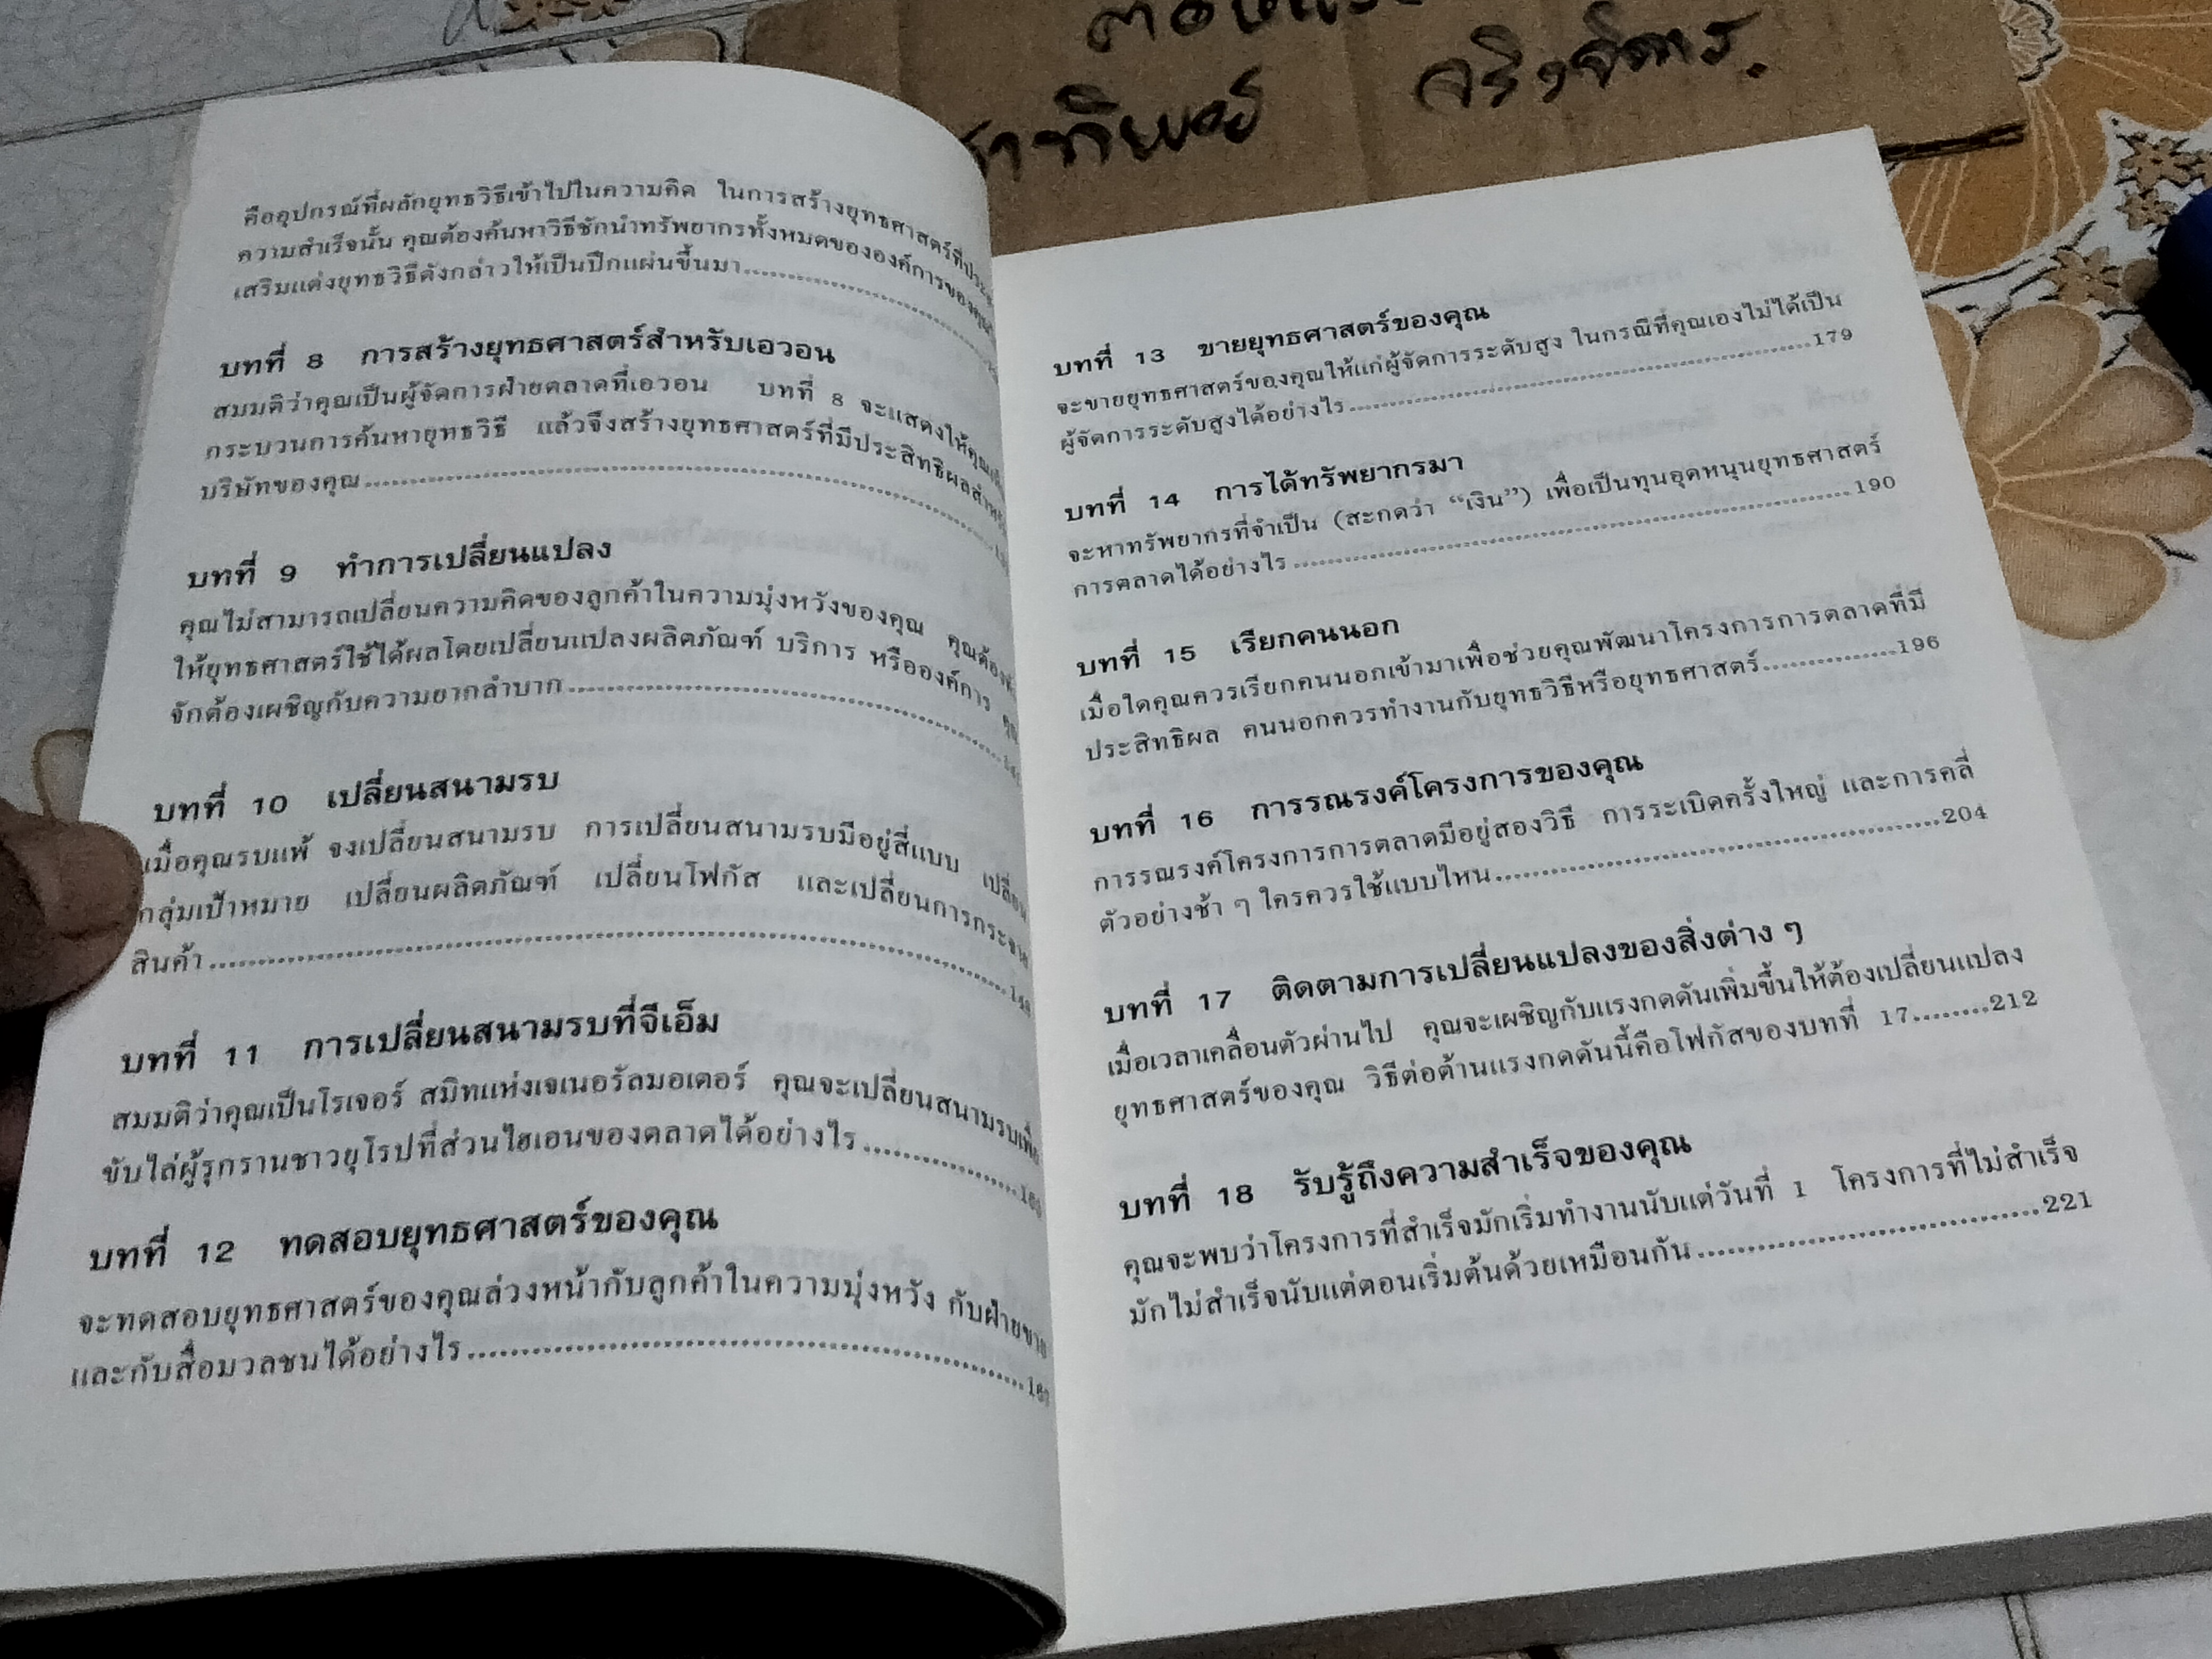 สาทิพย์
คืออุปกรณ์ที่ผลักยุทธวิธีเข้าไปในความคิด ในการสร้างยุทธศาสตร์ที่
ความสำเร็จนั้น คุณต้องค้นหาวิธีชักนำทรัพยากรทั้งหมดขององค์การของคุณ
เสริมแต่งยุทธวิธีดังกล่าวให้เป็นปึกแผ่นขึ้นมา
บทที่ 8 การสร้างยุทธศาสตร์สำหรับเอวอน
สมมติว่าคุณเป็นผู้จัดการฝ่ายตลาดที่เอวอน บทที่ 8 จะแสดงให้คุณ
กระบวนการค้นหายุทธวิธี แล้วจึงสร้างยุทธศาสตร์ที่มีประสิทธิผล
บริษัทของคุณ
บทที่ 9 ทำการเปลี่ยนแปลง
คุณไม่สามารถเปลี่ยนความคิดของลูกค้าในความมุ่งหวังของคุณ คุณต้อง
ให้ยุทธศาสตร์ใช้ได้ผลโดยเปลี่ยนแปลงผลิตภัณฑ์ บริการ หรือองค์การ
จักต้องเผชิญกับความยากลำบาก
บทที่ 10 เปลี่ยนสนามรบ
เมื่อคุณรบแพ้ จงเปลี่ยนสนามรบ การเปลี่ยนสนามรบมีอยู่สี่แบบ เปลี่ยน
กลุ่มเป้าหมาย เปลี่ยนผลิตภัณฑ์ เปลี่ยนโฟกัส และเปลี่ยนการกระจาย
สินค้า
บทที่ 11 การเปลี่ยนสนามรบที่จีเอ็ม
สมมติว่าคุณเป็นโรเจอร์ สมิทแห่งเจเนอรัลมอเตอร์ คุณจะเปลี่ยนสนามรบเพื่อ
ขับไล่ผู้รุกรานชาวยุโรปที่ส่วนไฮเอนของตลาดได้อย่างไร
บทที่ 12 ทดสอบยุทธศาสตร์ของคุณ
จะทดสอบยุทธศาสตร์ของคุณล่วงหน้ากับลูกค้าในความมุ่งหวัง กับฝ่ายขาย
และกับสื่อมวลชนได้อย่างไร
บทที่ 13 ขายยุทธศาสตร์ของคุณ
จะขายยุทธศาสตร์ของคุณให้แก่ผู้จัดการระดับสูง ในกรณีที่คุณเองไม่ได้เป็น
ผู้จัดการระดับสูงได้อย่างไร..........179
บทที่ 14 การได้ทรัพยากรมา
จะหาทรัพยากรที่จำเป็น (สะกดว่า “เงิน”) เพื่อเป็นทุนอุดหนุนยุทธศาสตร์
การตลาดได้อย่างไร..........190
บทที่ 15 เรียกคนนอก
เมื่อใดคุณควรเรียกคนนอกเข้ามาเพื่อช่วยคุณพัฒนาโครงการการตลาดที่มี
ประสิทธิผล คนนอกควรทำงานกับยุทธวิธีหรือยุทธศาสตร์..........196
บทที่ 16 การรณรงค์โครงการของคุณ
การรณรงค์โครงการการตลาดมีอยู่สองวิธี การระเบิดครั้งใหญ่ และการคลี่
ตัวอย่างช้า ๆ ใครควรใช้แบบไหน..........204
บทที่ 17 ติดตามการเปลี่ยนแปลงของสิ่งต่าง ๆ
เมื่อเวลาเคลื่อนตัวผ่านไป คุณจะเผชิญกับแรงกดดันเพิ่มขึ้นให้ต้องเปลี่ยนแปลง
ยุทธศาสตร์ของคุณ วิธีต่อต้านแรงกดดันนี้คือโฟกัสของบทที่ 17........212
บทที่ 18 รับรู้ถึงความสำเร็จของคุณ
คุณจะพบว่าโครงการที่สำเร็จมักเริ่มทำงานนับแต่วันที่ 1 โครงการที่ไม่สำเร็จ
มักไม่สำเร็จนับแต่ตอนเริ่มต้นด้วยเหมือนกัน..........221